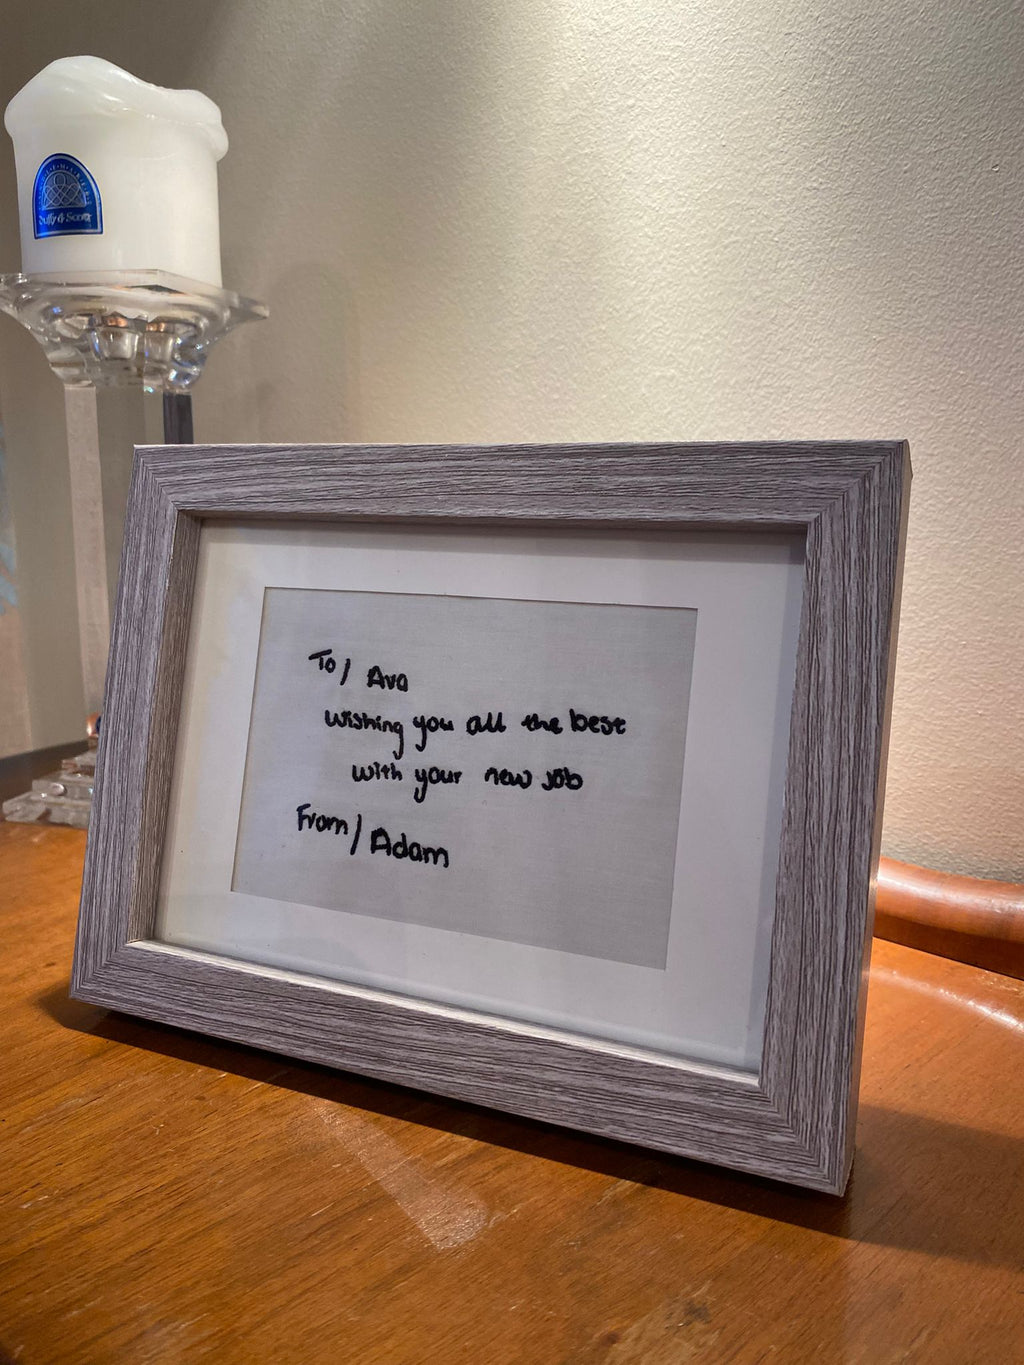 To/ Ava
Wishing you all the best
with your new job
From/ Adam